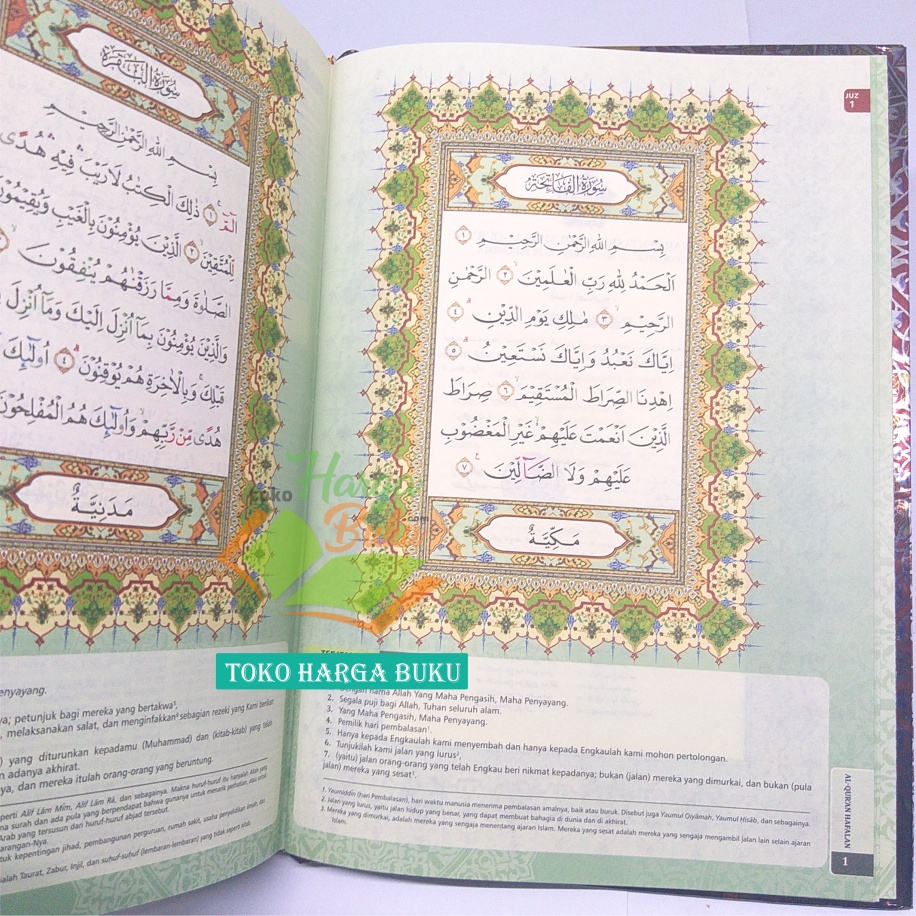 JUZ
1
سُوْرَةُ الْفَاتِحَةِ
بِسْمِ اللّٰهِ الرَّحْمٰنِ الرَّحِيْمِ ١
اَلْحَمْدُ لِلّٰهِ رَبِّ الْعٰلَمِيْنَۙ ٢ الرَّحْمٰنِ
الرَّحِيْمِۙ ٣ مٰلِكِ يَوْمِ الدِّيْنِۗ ٤
اِيَّاكَ نَعْبُدُ وَاِيَّاكَ نَسْتَعِيْنُۗ ٥
اِهْدِنَا الصِّرَاطَ الْمُسْتَقِيْمَۙ ٦ صِرَاطَ
الَّذِيْنَ اَنْعَمْتَ عَلَيْهِمْۙ غَيْرِ الْمَغْضُوْبِ
عَلَيْهِمْ وَلَا الضَّاۤلِّيْنَ ٧
مَكِّيَّةٌ
Dengan nama Allah Yang Maha Pengasih, Maha Penyayang.
2. Segala puji bagi Allah, Tuhan seluruh alam.
3. Yang Maha Pengasih, Maha Penyayang.
4. Pemilik hari pembalasan¹.
5. Hanya kepada Engkaulah kami menyembah dan hanya kepada Engkaulah kami mohon pertolongan.
6. Tunjukilah kami jalan yang lurus²,
7. (yaitu) jalan orang-orang yang telah Engkau beri nikmat kepadanya; bukan (jalan) mereka yang dimurkai, dan bukan (pula
jalan) mereka yang sesat³.
1. Yaumiddīn (hari Pembalasan), hari waktu manusia menerima pembalasan amalnya, baik atau buruk. Disebut juga Yaumul Qiyāmah, Yaumul Hisāb, dan sebagainya.
2. Jalan yang lurus, yaitu jalan hidup yang benar, yang dapat membuat bahagia di dunia dan di akhirat.
3. Mereka yang dimurkai, adalah mereka yang sengaja menentang ajaran Islam. Mereka yang sesat adalah mereka yang sengaja mengambil jalan lain selain ajaran
Islam.
AL-QURAN HAFALAN
1
سُوْرَةُ الْبَقَرَةِ
بِسْمِ اللّٰهِ الرَّحْمٰنِ الرَّحِيْمِ
الۤمّۤۚ ١ ذٰلِكَ الْكِتٰبُ لَا رَيْبَۛ فِيْهِۛ هُدًى
لِّلْمُتَّقِيْنَۙ ٢ الَّذِيْنَ يُؤْمِنُوْنَ بِالْغَيْبِ وَيُقِيْمُوْنَ
الصَّلٰوةَ وَمِمَّا رَزَقْنٰهُمْ يُنْفِقُوْنَۙ
وَالَّذِيْنَ يُؤْمِنُوْنَ بِمَآ اُنْزِلَ اِلَيْكَ وَمَآ اُنْزِلَ
قَبْلِكَۚ وَبِالْاٰخِرَةِ هُمْ يُوْقِنُوْنَۗ ٤ اُولٰۤىِٕكَ
هُدًى مِّنْ رَّبِّهِمْۙ وَاُولٰۤىِٕكَ هُمُ الْمُفْلِحُوْنَ
مَدَنِيَّةٌ
enyayang.
ya; petunjuk bagi mereka yang bertakwa⁵,
, melaksanakan salat, dan menginfakkan⁶ sebagian rezeki yang Kami berikan
) yang diturunkan kepadamu (Muhammad) dan (kitab-kitab) yang telah
n adanya akhirat.
ya, dan mereka itulah orang-orang yang beruntung.
perti Alif Lām Mīm, Alif Lām Rā, dan sebagainya. Makna huruf-huruf itu hanyalah Allah yang
na surah dan ada pula yang berpendapat bahwa gunanya untuk menarik perhatian, atau untuk
Arab yang tersusun dari huruf-huruf abjad tersebut.
arangan-Nya.
tuk kepentingan jihad, pembangunan perguruan, rumah sakit, usaha penyelidikan ilmiah, dan
ialah Taurat, Zabur, Injil, dan suhuf-suhuf (lembaran-lembaran) yang tidak seperti kitab.
toko
Harga
Buku
.com
TOKO HARGA BUKU